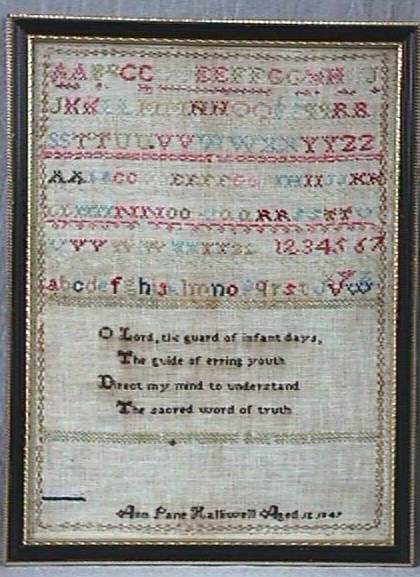 AA CC EEFFGG HH J
JKK NN OO RR
SSTTUU VV WWXXYYZZ
AA CC EEFF HHII JJKK
NNOO RR TTU
VV YYZZ 1234567
abcdef ghi lmnopqrstuvw
O Lord, the guard of infant days,
The guide of erring youth
Direct my mind to understand
The sacred word of truth
Ann Halliwell Aged 12